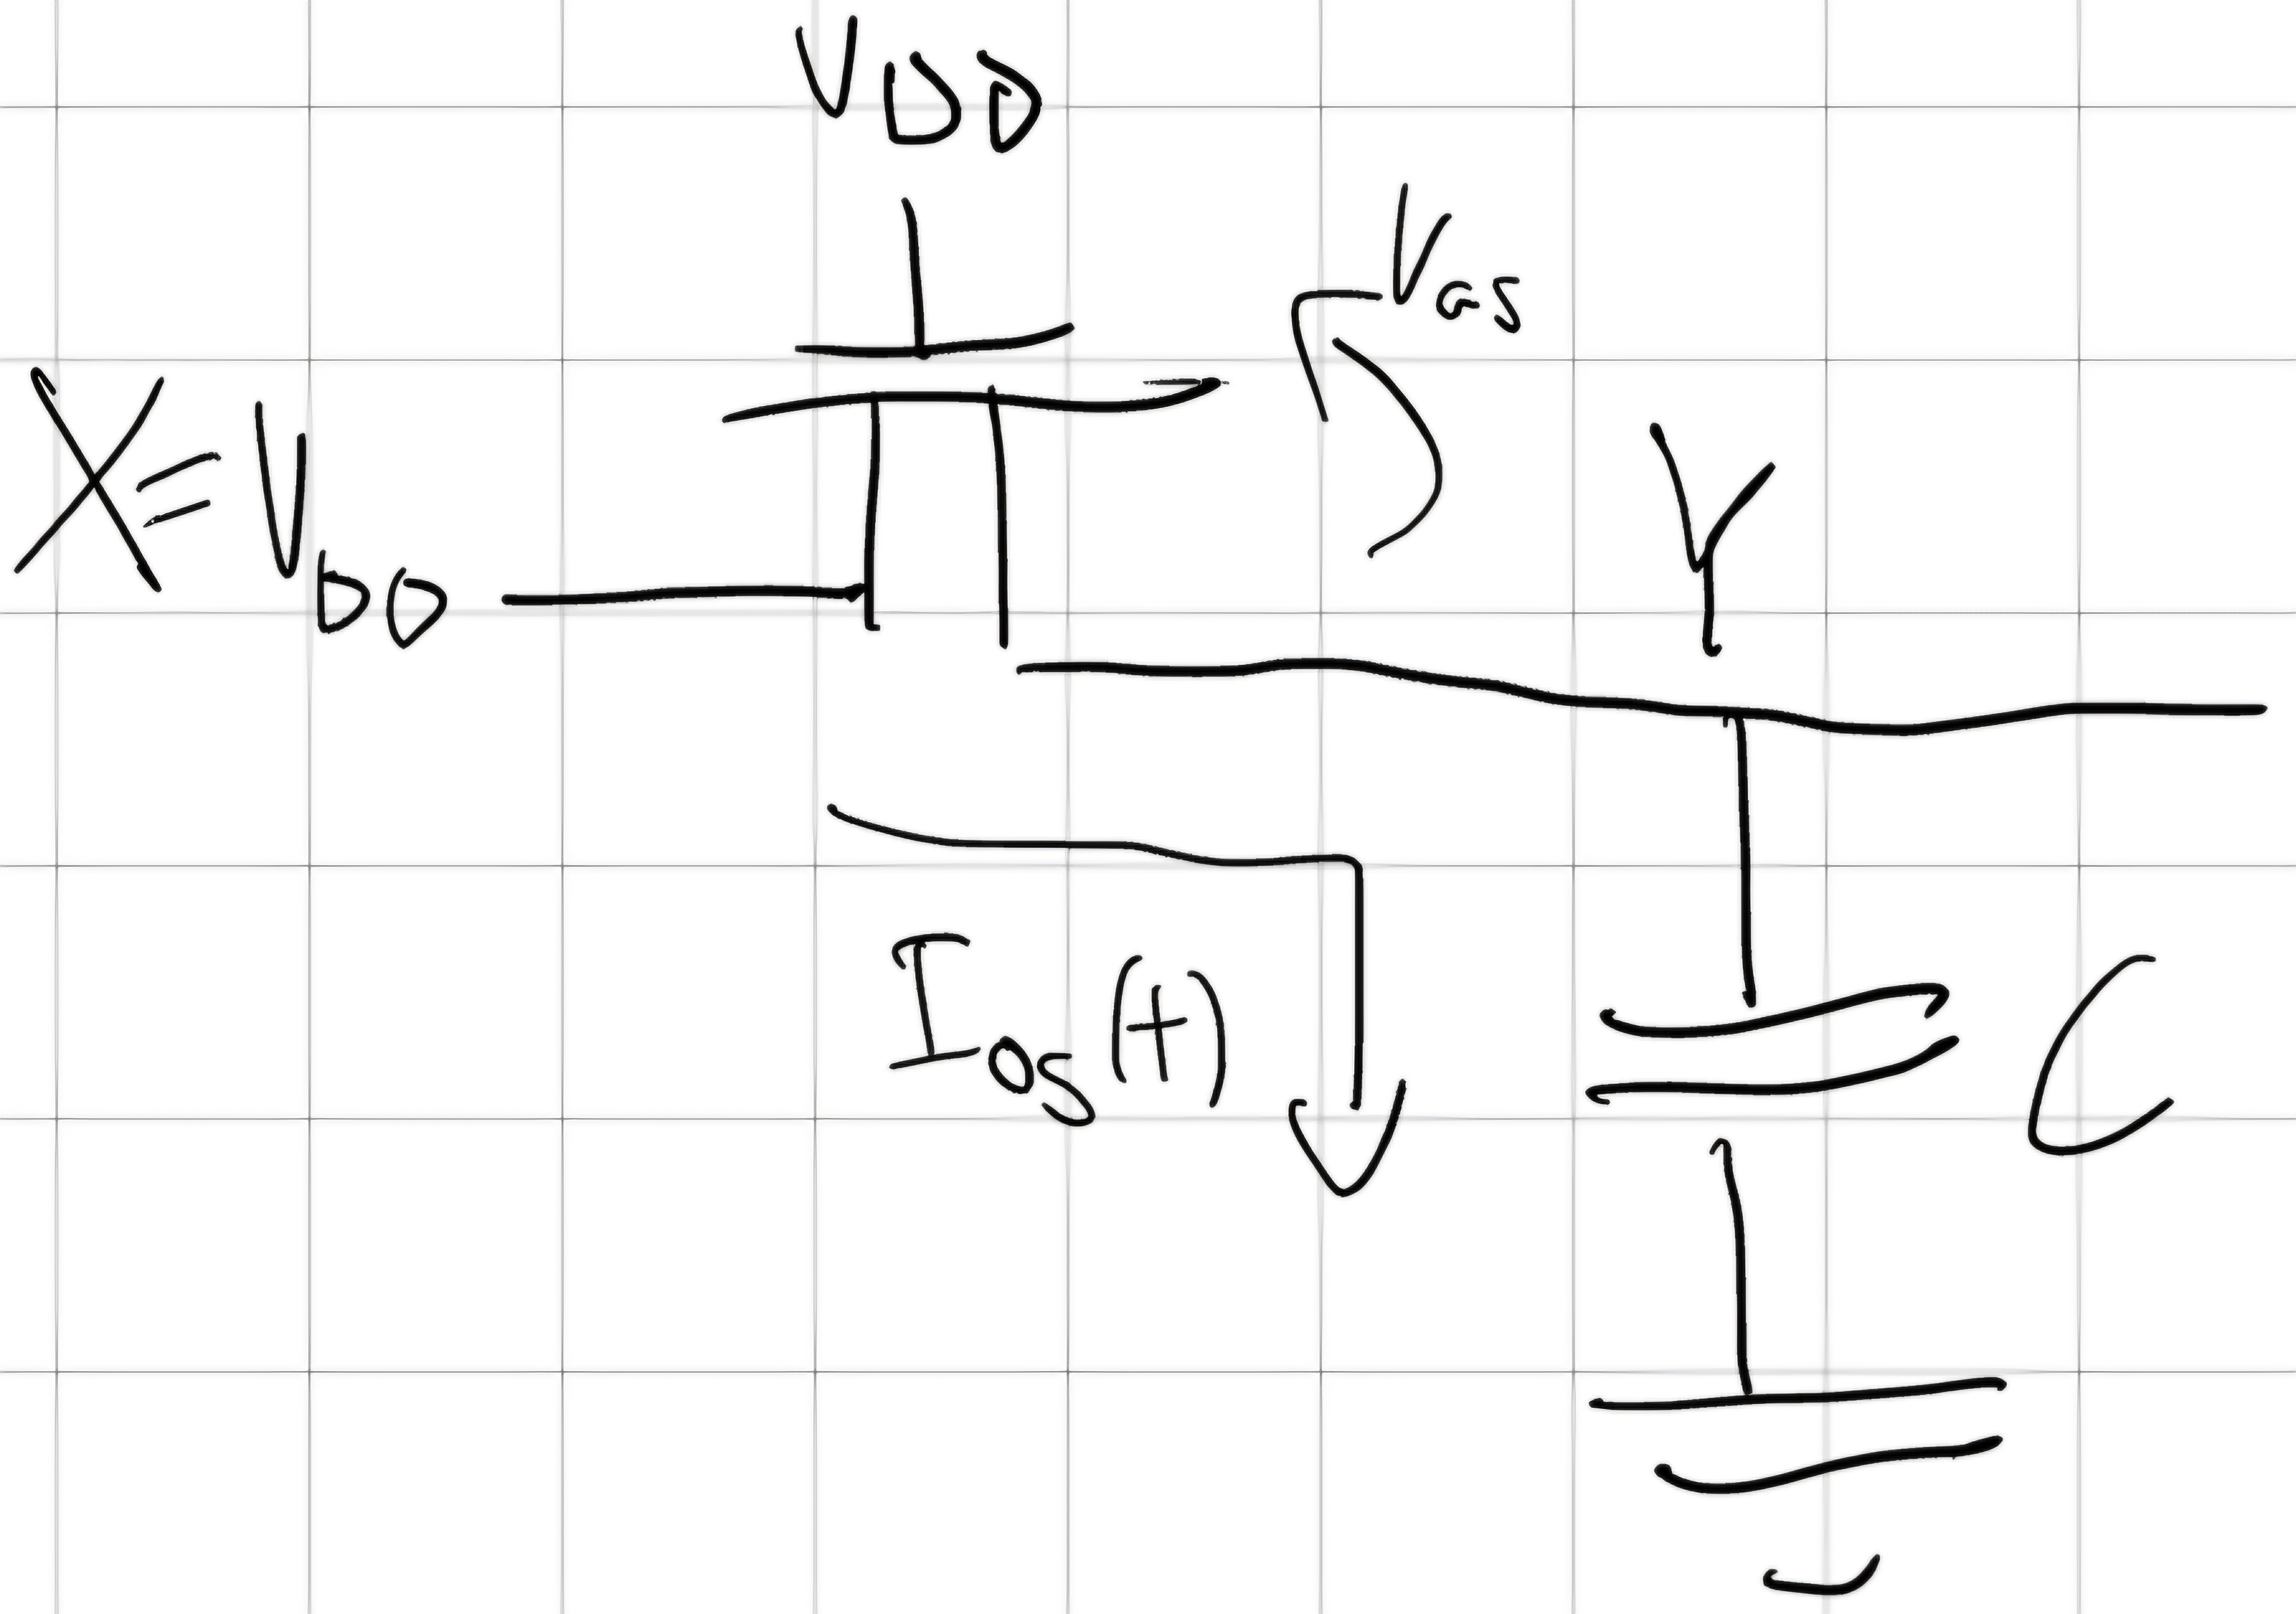 VDD
VGS
X=VDD
Y
IDS(t)
C